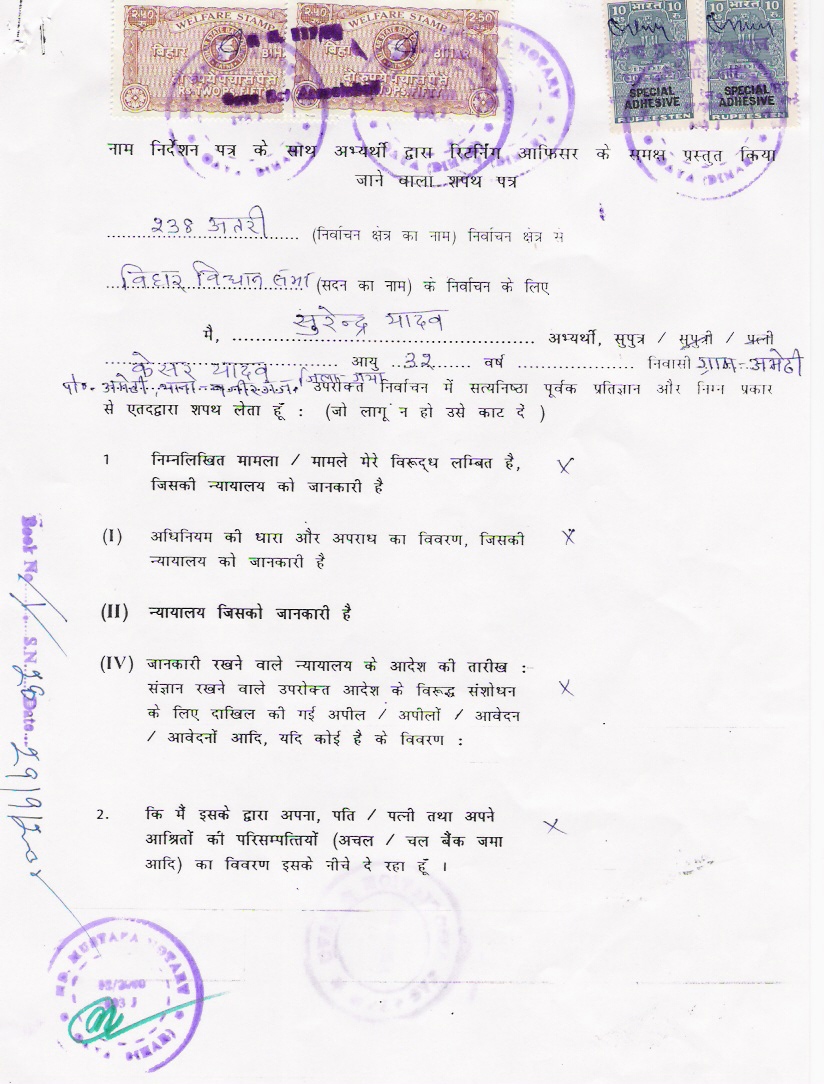 2.50 WELFARE STAMP WELFARE STAMP 2.50
बिहार BIHAR बिहार BIHAR
दो रूपये पचास पैसे दो रूपये पचास पैसे
RS. TWO PS. FIFTY RS. TWO PS. FIFTY
10 भारत 10 10 भारत 10
SPECIAL ADHESIVE SPECIAL ADHESIVE
RUPEES TEN RUPEES TEN
नाम निर्देशन पत्र के साथ अभ्यर्थी द्वारा रिटर्निंग आफिसर के समक्ष प्रस्तुत किया
जाने वाला शपथ पत्र
२३८ अतरी (निर्वाचन क्षेत्र का नाम) निर्वाचन क्षेत्र से
विहार विधान सभा (सदन का नाम) के निर्वाचन के लिए
मै, सुरेन्द्र यादव अभ्यर्थी, सुपुत्र / सुपुत्री / पत्नी
केसर यादव आयु ३२ वर्ष निवासी ग्राम - अमेठी
पो०- अमेठी, थाना - वजीरगंज, जिला - गया उपरोक्त निर्वाचन में सत्यनिष्ठा पूर्वक प्रतिज्ञान और निम्न प्रकार
से एतदद्वारा शपथ लेता हूँ : (जो लागू न हो उसे काट दें )
1 निम्नलिखित मामला / मामले मेरे विरूद्ध लम्बित है, X
जिसकी न्यायालय को जानकारी है
(I) अधिनियम की धारा और अपराध का विवरण, जिसकी X
न्यायालय को जानकारी है
(II) न्यायालय जिसको जानकारी है
(IV) जानकारी रखने वाले न्यायालय के आदेश की तारीख :-
संज्ञान रखने वाले उपरोक्त आदेश के विरूद्ध संशोधन X
के लिए दाखिल की गई अपील / अपीलों / आवेदन
/ आवेदनों आदि, यदि कोई है के विवरण :
2. कि मैं इसके द्वारा अपना, पति / पत्नी तथा अपने
आश्रितों की परिसम्पत्तियों (अचल / चल बैंक जमा X
आदि) का विवरण इसके नीचे दे रहा हूँ ।
Book No. S.N. 28 Date 29/9/200
MD. MUSTAFA NOTARY
GAYA (BIHAR)